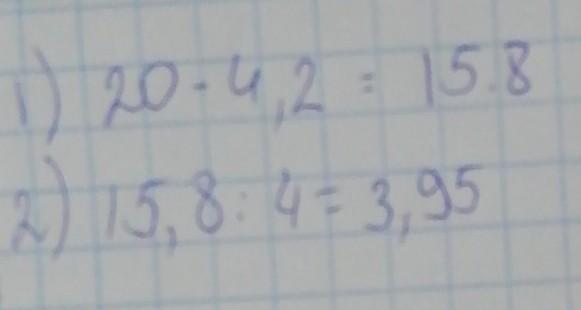 1) 20 - 4,2 = 15.8
2) 15,8 : 4 = 3,95